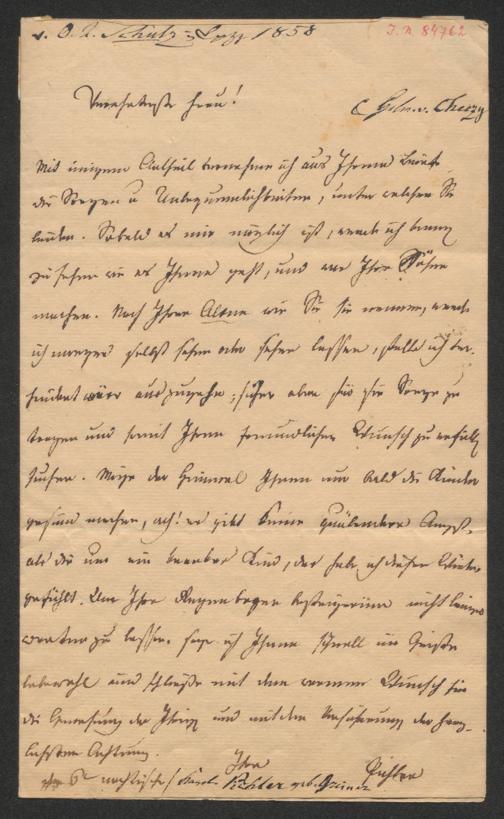 v. O. L. Schulz 1858
I.N. 84762
Verehrteste Frau!
C Helm. v. Chezy
Mit innigem Antheil vernehme ich aus Ihrem Briefe
die Sorgen u Unbequemlichkeiten, unter welchen Sie
leiden. Sobald es mir möglich ist, werde ich kommen
zu sehen wie es Ihnen geht, und was Ihre Söhne
machen. Nach Ihrer Alten wie Sie sie nennen, werde
ich morgen selbst sehen oder sehen lassen, sollte ich ver-
hindert wäre auszugehn; sicher aber für sie Sorge zu
tragen und somit Ihren freundlichen Wunsch zu erfüllen
suchen. Möge der Himmel Ihnen nur bald die Kinder
gesund machen, ach! es gibt keine quälendere Angst,
als die um ein krankes Kind, das habe ich diesen Winter
gefühlt. Um Ihre Regenbogen nicht länger
warten zu lassen, sage ich Ihnen schnell im Geiste
lebewohl und schließe mit dem warmen Wunsch für
die Genesung der Ihrigen und mit der Versicherung der herz-
lichsten Achtung.
Ihre
Pichler
Pichler geb. Greiner